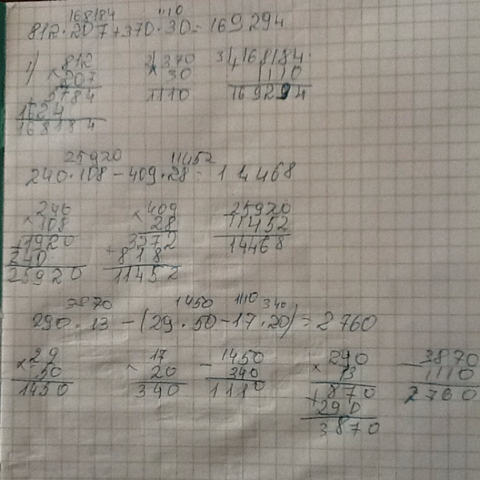 168184 1110
812·207+370·30=169294
1) 812 2) 370 3) 168184
×207 ×30 +1110
+5784 1110 169294
1624
168184
25920 11452
240·108-409·28=14468
×240 ×409 -25920
108 28 11452
+1920 +3272 14468
240 818
25920 11452
3870 1450 1110 340
290·13-(29·50-17·20)=2760
×29 ×17 -1450 ×290 -3870
50 20 340 13 1110
1450 340 1110 +870 2760
290
3870